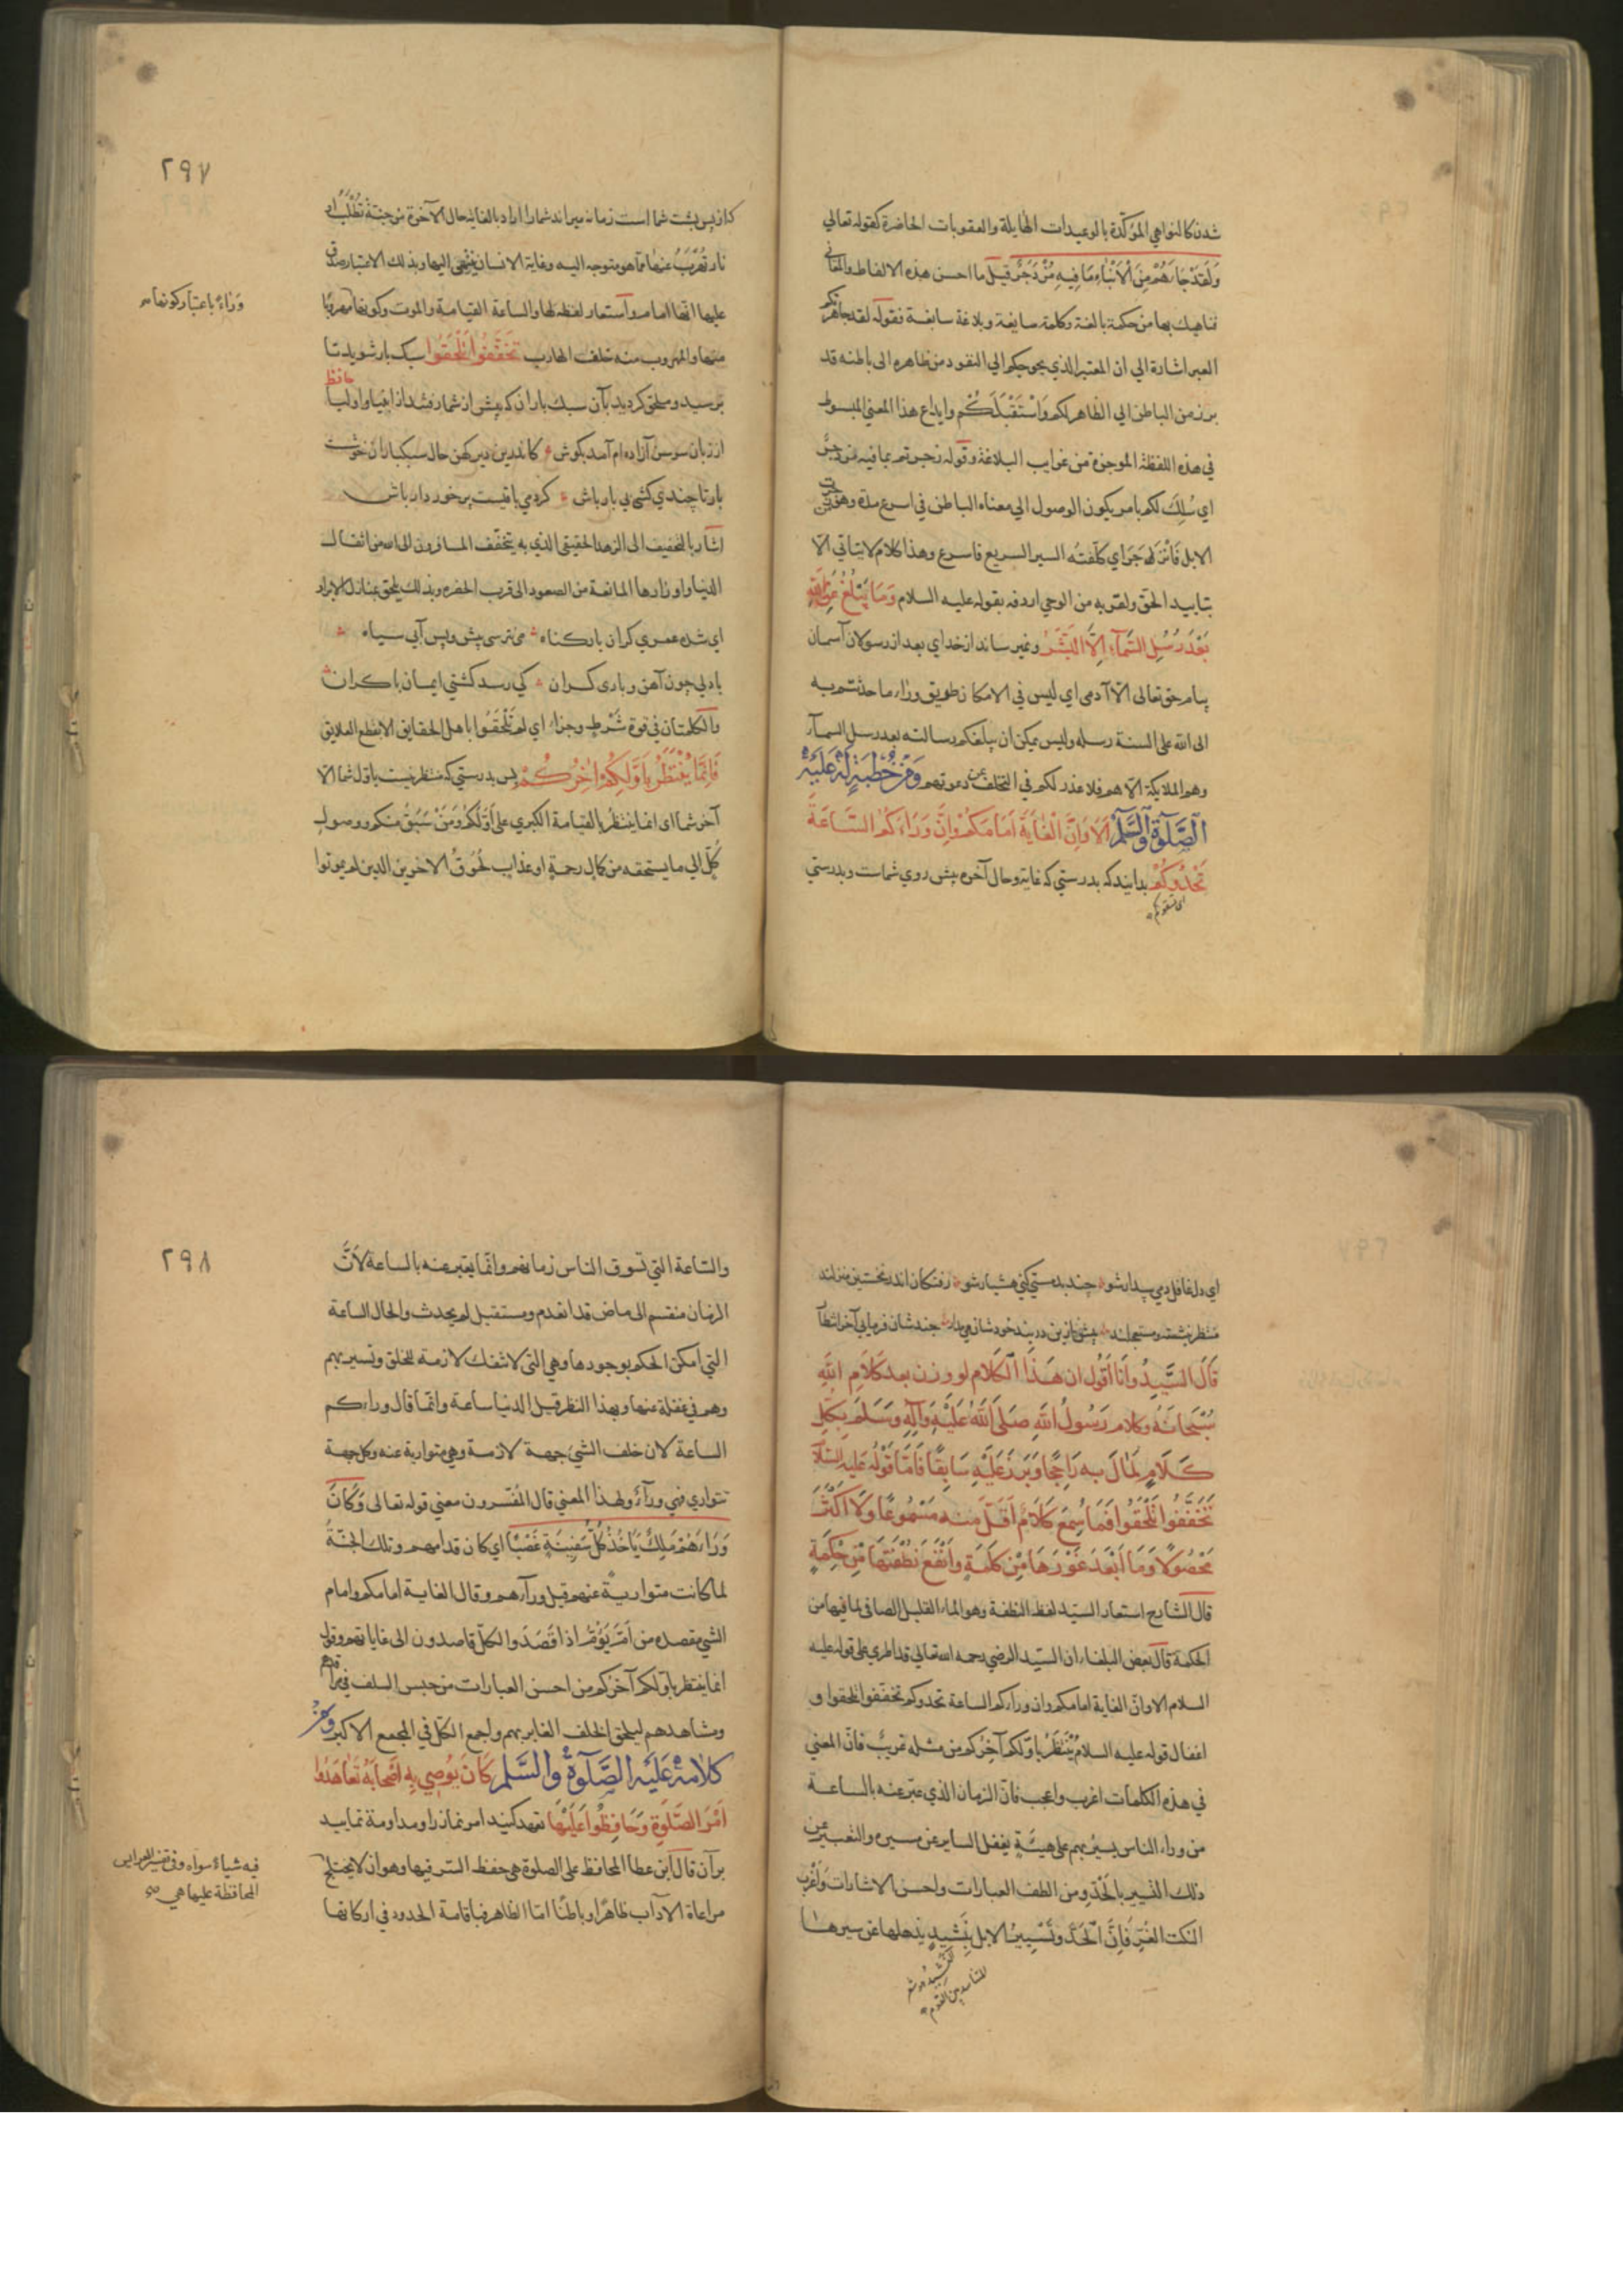 شدن كالنواهي المؤكّدة بالوعيدات الهايلة والعقوبات الحاضرة كقوله تعالي
وَلَقَدْ جَاءَهُمْ مِنَ الْأَنْبَاءِ مَا فِيهِ مُزْدَجَرٌ قيل ما احسن هذه الالفاظ والمعاني
نناهيك بها من حكمة بالغة وكلمة سايغة وبلاغة سابغة فقوله لقد جاهرتكم
العبر اشارة الي ان المعتبر الذي يحوجكم الي النفود من ظاهره الى باطنه قد
برز من الباطن الي الظاهر لكم وَاسْتَقْبَلَكُم وايداع هذا المعني المبسوط
في هذه اللفظة الموجزة من غرايب البلاغة وقوله زجرتم بما فيه مزدجر
اي سُلِكَ لكم بامر يكون الوصول الي معناه الباطن في اسرع مدة وهو من
الابل فَانْزَجَرَ اي كلّفته السير السريع فاسرع وهذا كلام لا يتاتي الّا
بتاييد الحق ولقربه من الوحي اردفه بقوله عليه السلام وَمَا يُبَلِّغُ عَنِ اللَّهِ
بَعْدَ رُسُلِ السَّمَآءِ اِلَّا الْبَشَرُ ونمير ساند از خداي بعد از رسولان آسمان
پيام حق تعالى الّا آدمي اي ليس في الامكان طريق وراء ما حذتتم به
الى الله على السنة رسله وليس يمكن ان يبلغكم رسالته بعد رسل السمآء
وهم الملايكة الّا هم فلا عذر لكم في التخلف عن دعوتهم وَمِنْ خُطْبَةٍ لَهُ عَلَيْهِ
الصَّلٰوةُ وَالسَّلٰم اَلَا وَاِنَّ الْغَايَةَ اَمَامَكُمْ وَاِنَّ وَرَاءَكُمُ السَّاعَةَ
تَحْدُوكُمْ بدانيد كه بدرستي كه غاية وحال آخره پيش روي شماست وبدرستي
٢٩٧
كه از پس پشت شما است زمانه ميراند شما را اراد بالغاية حال الآخرة من جنّة تُطْلَبُ او
نار تُهْرَبُ عنها مما هو متوجه اليه وغاية الانسان ينتهي اليها وبذلك الاعتبار صدق
عليها انها امام واستعار لفظه لها والساعة القيامة والموت وكونها مهروبًا
وَرَاءُ باعتبار كونها
منها والمهروب منه خلف الهارب تَخَفَّفُوا تَلْحَقُوا سبك بار شويد تا
برسيد وملحق كرديد بآن سبك باران كه پيش از شما رفتند از انبيا واوليا
حافظ
از زبان سوسن آزاده ام آمد بكوش كاندرين دير كهن حال سبكباران خوشست
بار تا چندي كشي بي بار باش كر دمي باقيست برخوردار باش
اشار بالتخفيف الى الزهد الحقيقي الذي به يتخفّف المسافرون الى الله من اثقال
الدنيا واوزارها المانعة من الصعود الى قرب الحضره وبذلك يلحق بمنازل الابرار
اي شده عمري كران بار كناه مي نترسي پيش وپس آبي سياه
با دلي چون آهن وباري كران كي رسد كشتي ايمان با كران
والكلمتان في قوة شَرْطٍ وجزاء اي لم تَلْحَقُوا باهل الحقايق الا بقطع العلايق
فَاِنَّمَا يُنْتَظَرُ بِاَوَّلِكُمْ اٰخِرُكُمْ پس بدرستي كه منتظر نيست باول شما الّا
آخر شما اى انما ينتظر بالقيامة الكبري على اَوَّلكم وَمَنْ سَبَقَ منكم ووصول
كلّ الي ما يستحقه من كمال رحمة او عذاب لُحوقُ الاخرين الذين لم يموتوا
اي دل غافل دمي بيدار شو چند بد مستي كني هشيار شو رفتكان اندر نخستين منزلند
منتظر بنشسته ومستعجلند پيش ازين در بند خود شان مي‌مدار چند شان فرمايي آخر انتظار
قَالَ السَّيِّدُ وَاَنَا اَقُولُ ان هَذَا الْكَلَامَ لو وزن بعد كَلَامِ اللهِ
سُبْحَانَهُ وكلام رَسُولِ اللهِ صَلَى اللهُ عَلَيْهِ وَآلِهِ وَسَلَم بِكُلِ
كَلَامٍ لَمَالَ به رَاجِحًا وَبَرَزَ عَلَيْهِ سَابِقًا فَامّا قَوْلُه عليه السلآم
تَخَفَّفُوا تَلْحَقُوا فَمَا سُمِعَ كَلَامٌ اَقَلّ منه مَسْمُوعًا وَلَا اَكْثَرَ
مَحْصُولًا وَمَا اَبْعَدَ غَوْرَهَا مِنْ كَلِمَةٍ وَاَنْقَعَ نُطْفَتَهَا مِنْ حِكْمَةٍ
قال الشارح استعار السيّد لفظ النطفة وهو الماء القليل الصافي لما فيها من
الحكمة قال بعض البلغاء ان السيّد الرضي رحمه الله تعالي قد اطري على قوله عليه
السلام الا وانّ الغاية امامكم وان وراءكم الساعة تحدوكم تخففوا تلحقوا و
اغفال قوله عليه السلام يُنْتَظَرُ باوّلكم آخِرُكم من مثله غريبٌ فانّ المعني
في هذه الكلمات اغرب واعجب فانّ الزمان الذي عبر عنه بالساعة
من وراء الناس يسيرُ بهم على هيئةٍ يغفل الساير عن مسيره والتعبير عن
ذلك التسيير بالْحَدْوِ من الطف العبارات واحسن الاشارات واَغْرب
النكت الغُرِّ فَاِنَّ الْحَدْوَ تَسْيِيرُ الابل بِنَشِيدٍ يذهلها عن سيرها
٢٩٨
والساعة التي تسوق الناس زمانهم وانّما يعتبر عنه بالساعة لاَنَّ
الزمان منقسم الى ماض قد تقدم ومستقبل لم يحدث والحال الساعة
التي امكن الحكم بوجودها وهي التى لا تنفك لازمة للخلق وتسير بهم
وهم في غفلة عنها وبهذا النظر قيل الدنيا ساعة وانّما قال وراءكم
الساعة لان خلف الشيئ جهة لازمة وهي متوارية عنه وكل جهة
تتواري فهي ورآءٌ ولهذا المعني قال المُفسّرون معني قوله تعالى وَكَانَ
وَرَاءَهُمْ مَلِكٌ يَأْخُذُ كُلَّ سَفِينَةٍ غَصْبًا اي كان قدامهم وتلك الجنّةُ
لما كانت متواريةً عنهم قيل ورآءهم وقال الغاية امامكم وامام
الشيئ مقصده من اَمَّ يَؤُمُّ اذا قَصَدَ والكلّ قاصدون الى غاياتهم وقوله
انما ينتظر باولكم آخركم من احسن العبارات من حبس السلف في مراقدهم
ومشاهدهم ليلحق الخلف الغابر بهم واجمع الكلّ في المجمع الاكبر وَمِنْ
كَلَامِهِ عَلَيْهِ الصَّلٰوةُ والسَّلٰم كَانَ يُوصِي بِهِ اَصْحَابَهُ تَعَاهَدُوا
اَمْرَ الصَّلٰوةِ وَحَافِظُوا عَلَيْهَا تعهد كنيد امر نماز را ومداومة نماييد
بر آن قال ابن عطا المحافظ على الصلوة هي حفظ السرّ فيها وهو ان لا يختلج
فيه شيءٌ سواه وفى تفسير العرايس
المحافظة عليها هي
مراعاة الآداب ظاهرًا وباطنًا امّا الظاهر فباقامة الحدود في اركانها